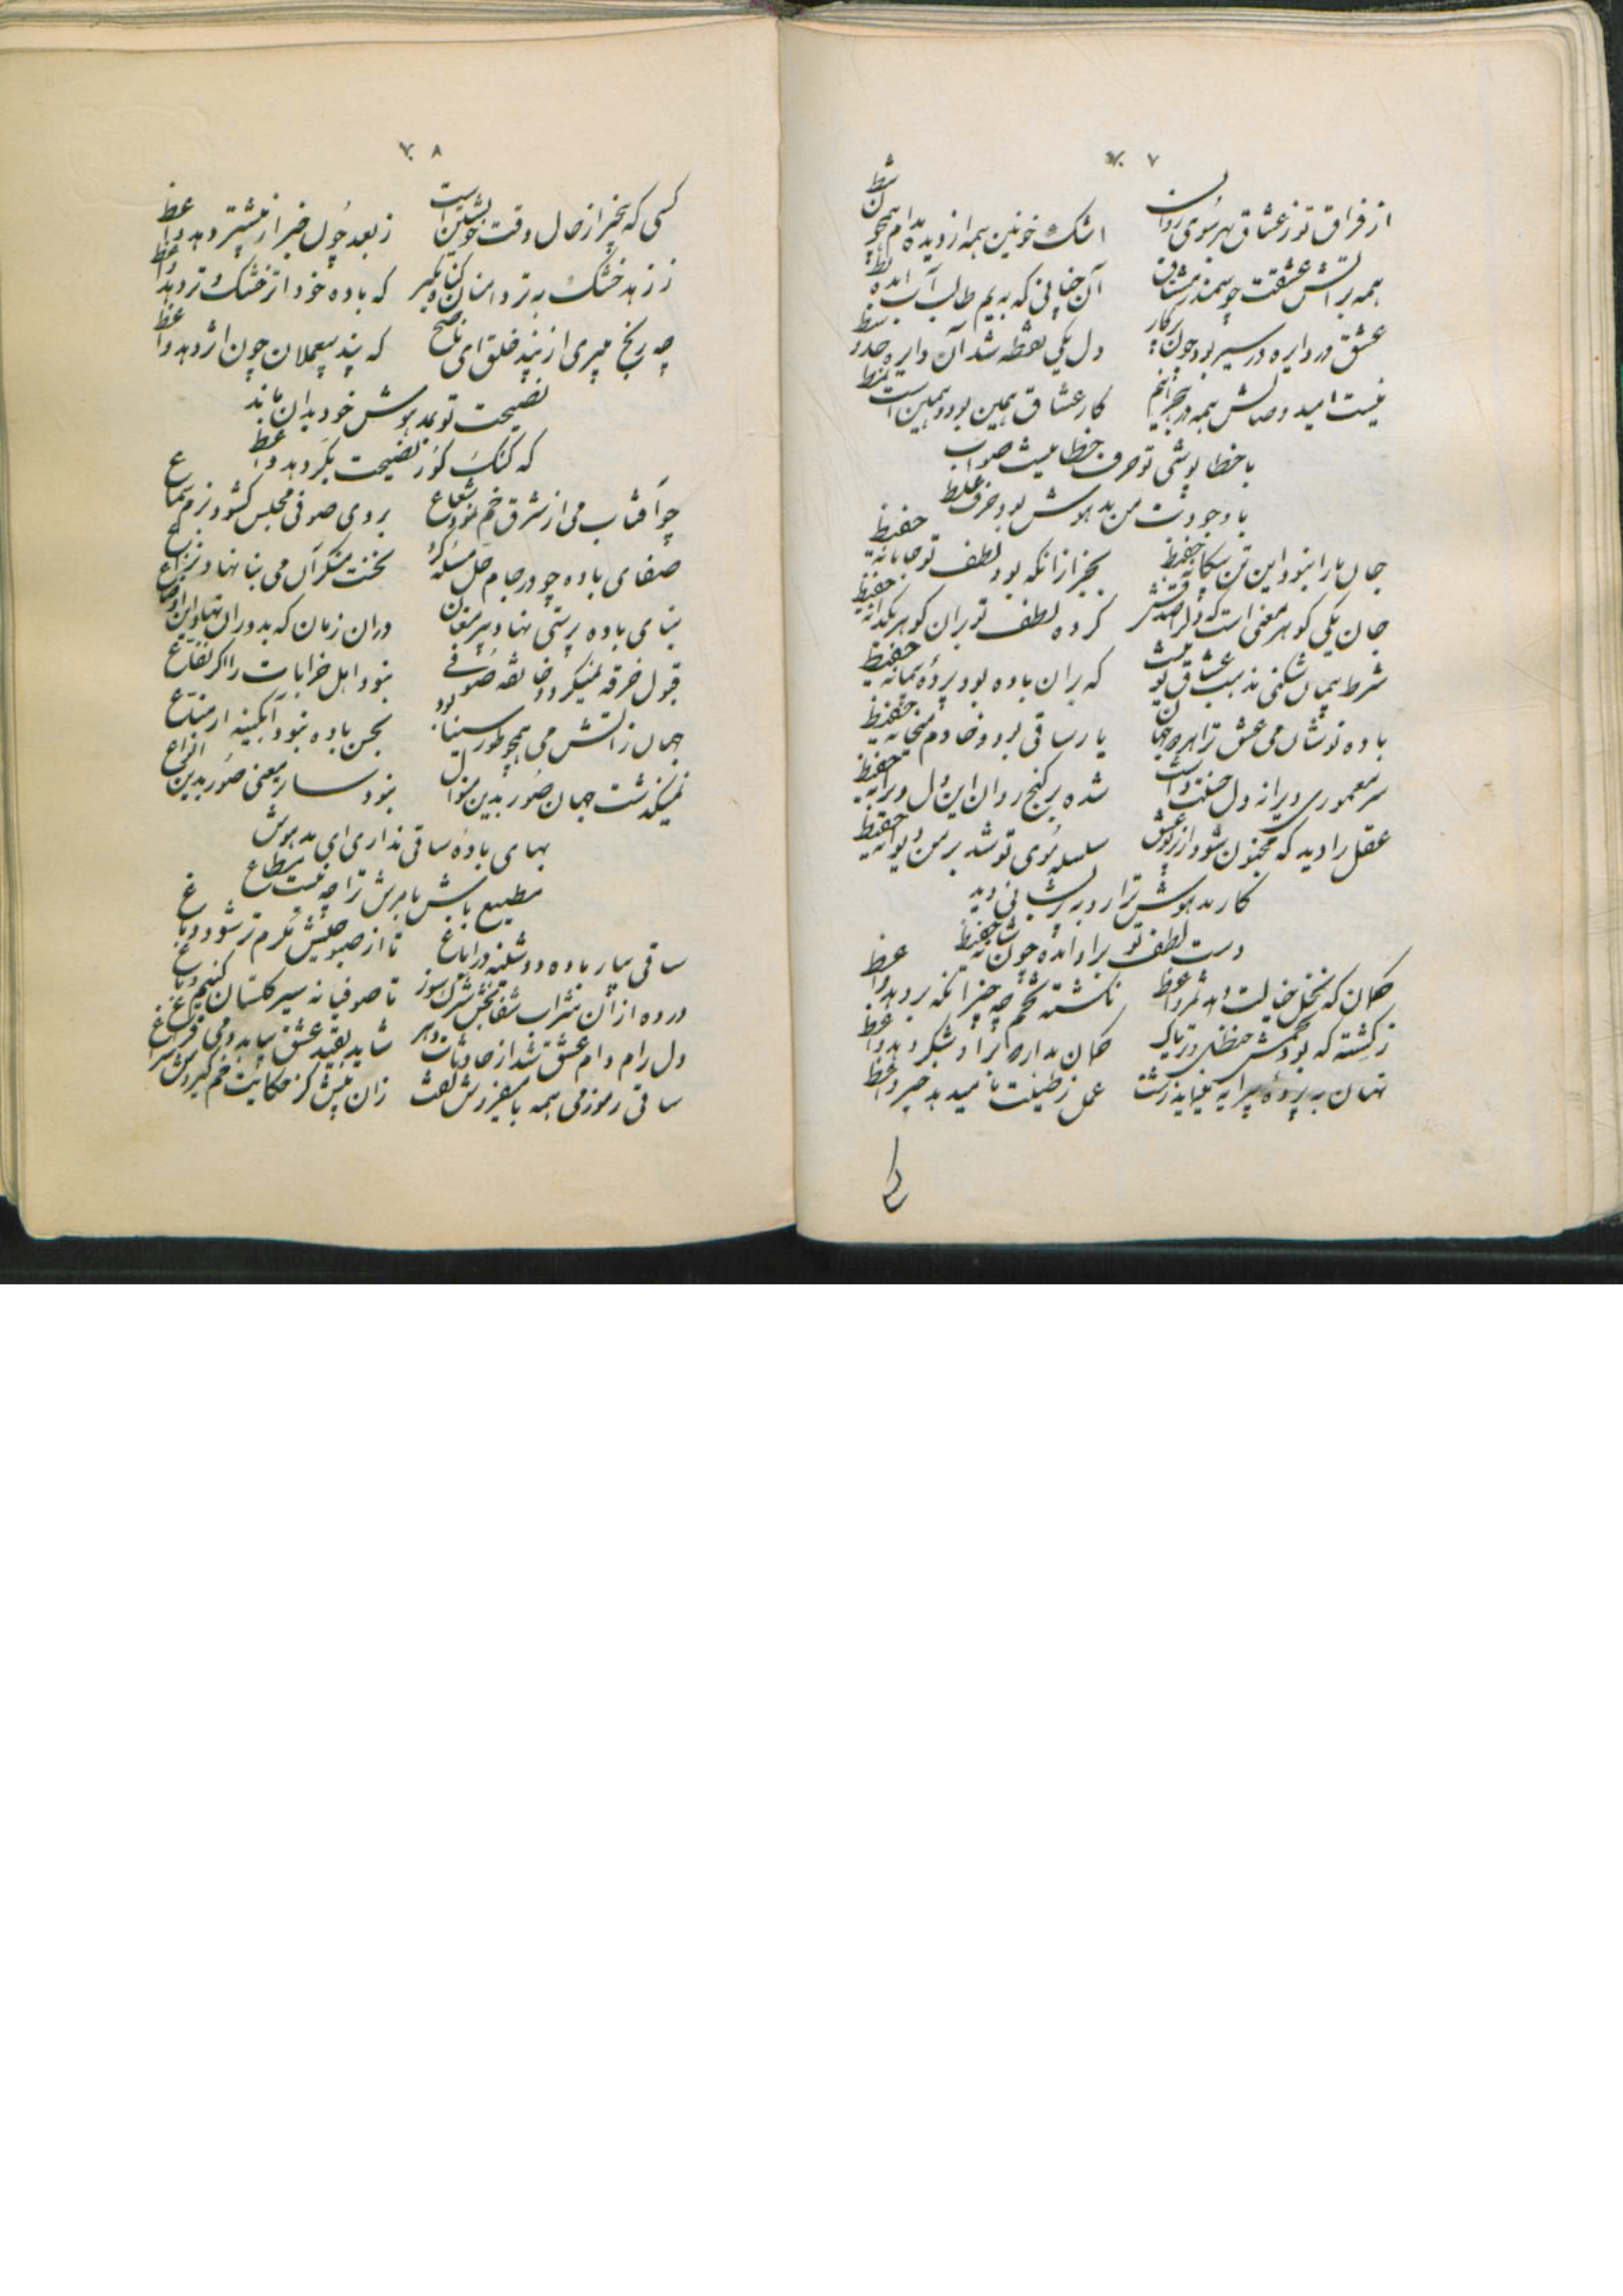 ۷۰۷
از فراق تو ز عشاق بهر سوی روان اشک خونین همه از دیده مدام همچو شط
همه بر آتش عشقت چو سمندر مشتاق آن چنانی که به یم طالب آب آمده بط
عشق در دایره در سیر بود چون پرکار دل یکی نقطه شد آن دایره حد وسط
نیست امید وصالش همه در هجر انجم کار عشاق همین بود و همین است نمط
با خطا پوشی تو حرف خطا نیست صواب
با وجودت من مدهوش بود حرف غلط
جان ما را نبود این تن حفیظ بجز از آنکه بود لطف تو حفیظ
جان یکی گوهر معنی است که صدفش کرده لطف تو بر آن گوهر یکدانه حفیظ
شرط پیمان شکنی مذهب عشاق تو نیست که بر آن باده بود پرده پیمانه حفیظ
باده نوشان می عشق ترا هر دو جهان یار ساقی بود و خادم میخانه حفیظ
سر معموری ویرانه دل شده بر گنج روان این دل ویرانه حفیظ
عقل را دید که مجنون شود از پرتو عشق سلسله موی تو شد بر من دیوانه حفیظ
کار مدهوش ترا رو به پریشانی دید
دست لطف تو بر او آمده چون شانه حفیظ
گمان که نخل خیالت دهد ثمر واعظ نکشته تخم چه چیز آنکه بر دهد واعظ
ز کشته که بود تخمش حنظل و تریاک گمان مدار مر او شکر دهد واعظ
نهان به پرده پیرایه زشت عمل ز طینت ما میدهد خبر واعظ
۷۰۸
کسی که بیخبر از حال وقت خویشتن است ز بعد چون خبر از پیشتر دهد واعظ
ز زهد خشک به تر دامنان کنایه مگیر که باده خود اثر خشک و تر دهد واعظ
چه رنج میبری از پند خلق ای ناصح که پند بیعملان چون اثر دهد واعظ
نصیحت تو بمدهوش خود بدان ماند
که گنگ کور نصیحت بکر دهد واعظ
چو آفتاب می از شرق خم نمود شعاع بروی صوفی مجلس گشود بزم سماع
صفای باده چو در جام حل مسئله کرد نخست منکر آن می بنا نهاد نزاع
بنای باده پرستی نهاد پیر مغان در آن زمان که بدوران نهاد این اوضاع
قبول خرقه نمیکرد خانقه صوفی نبود اهل خرابات را اگر نفاع
جهان ز آتش می همچو طور سینا بود بجن باده نبود آبگینه ار مناع
نمیگذشت جهان صور بدین منوال نبود سار معنی صور بدین انواع
بهای باده ساقی نداری ای مدهوش
مطیع باش بامرش ترا چه نیست مطاع
ساقی بیار باده دوشینه در ایاغ تا از صبوحیش نگرم تر شود دماغ
در ده از آن شراب شفابخش شرک سوز تا صوفیانه سیر گلستان کنیم و باغ
دل رام دام عشق شد از حادثات دهر شاید بقید عشق بیابد دمی فراغ
ساقی رموز می همه با میفروش گفت زان پیش کز حکایت خم گیردش سراغ